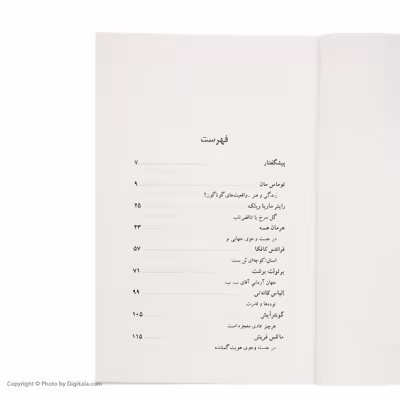 فهرست
پیشگفتار ۷
توماس مان ۹
زندگی و هنر ـ واقعیت‌های گوناگون؟
راینر ماریا ریلکه ۲۵
گل سرخ یا تناقض ناب
هرمان هسه ۴۳
در جست و جوی جهانی و
فرانتس کافکا ۵۷
انسان: کوچه‌ای بُن بست
برتولت برشت ۷۱
جهان آرمانی آقای ب. ب.
الیاس کانه‌تی ۹۹
توده‌ها و قدرت
گونتر آیش ۱۰۵
هر چیز عادی معجزه است
ماکس فریش ۱۱۵
در جست و جوی هویت گمشده
Copyright © Photo by Digikala.com